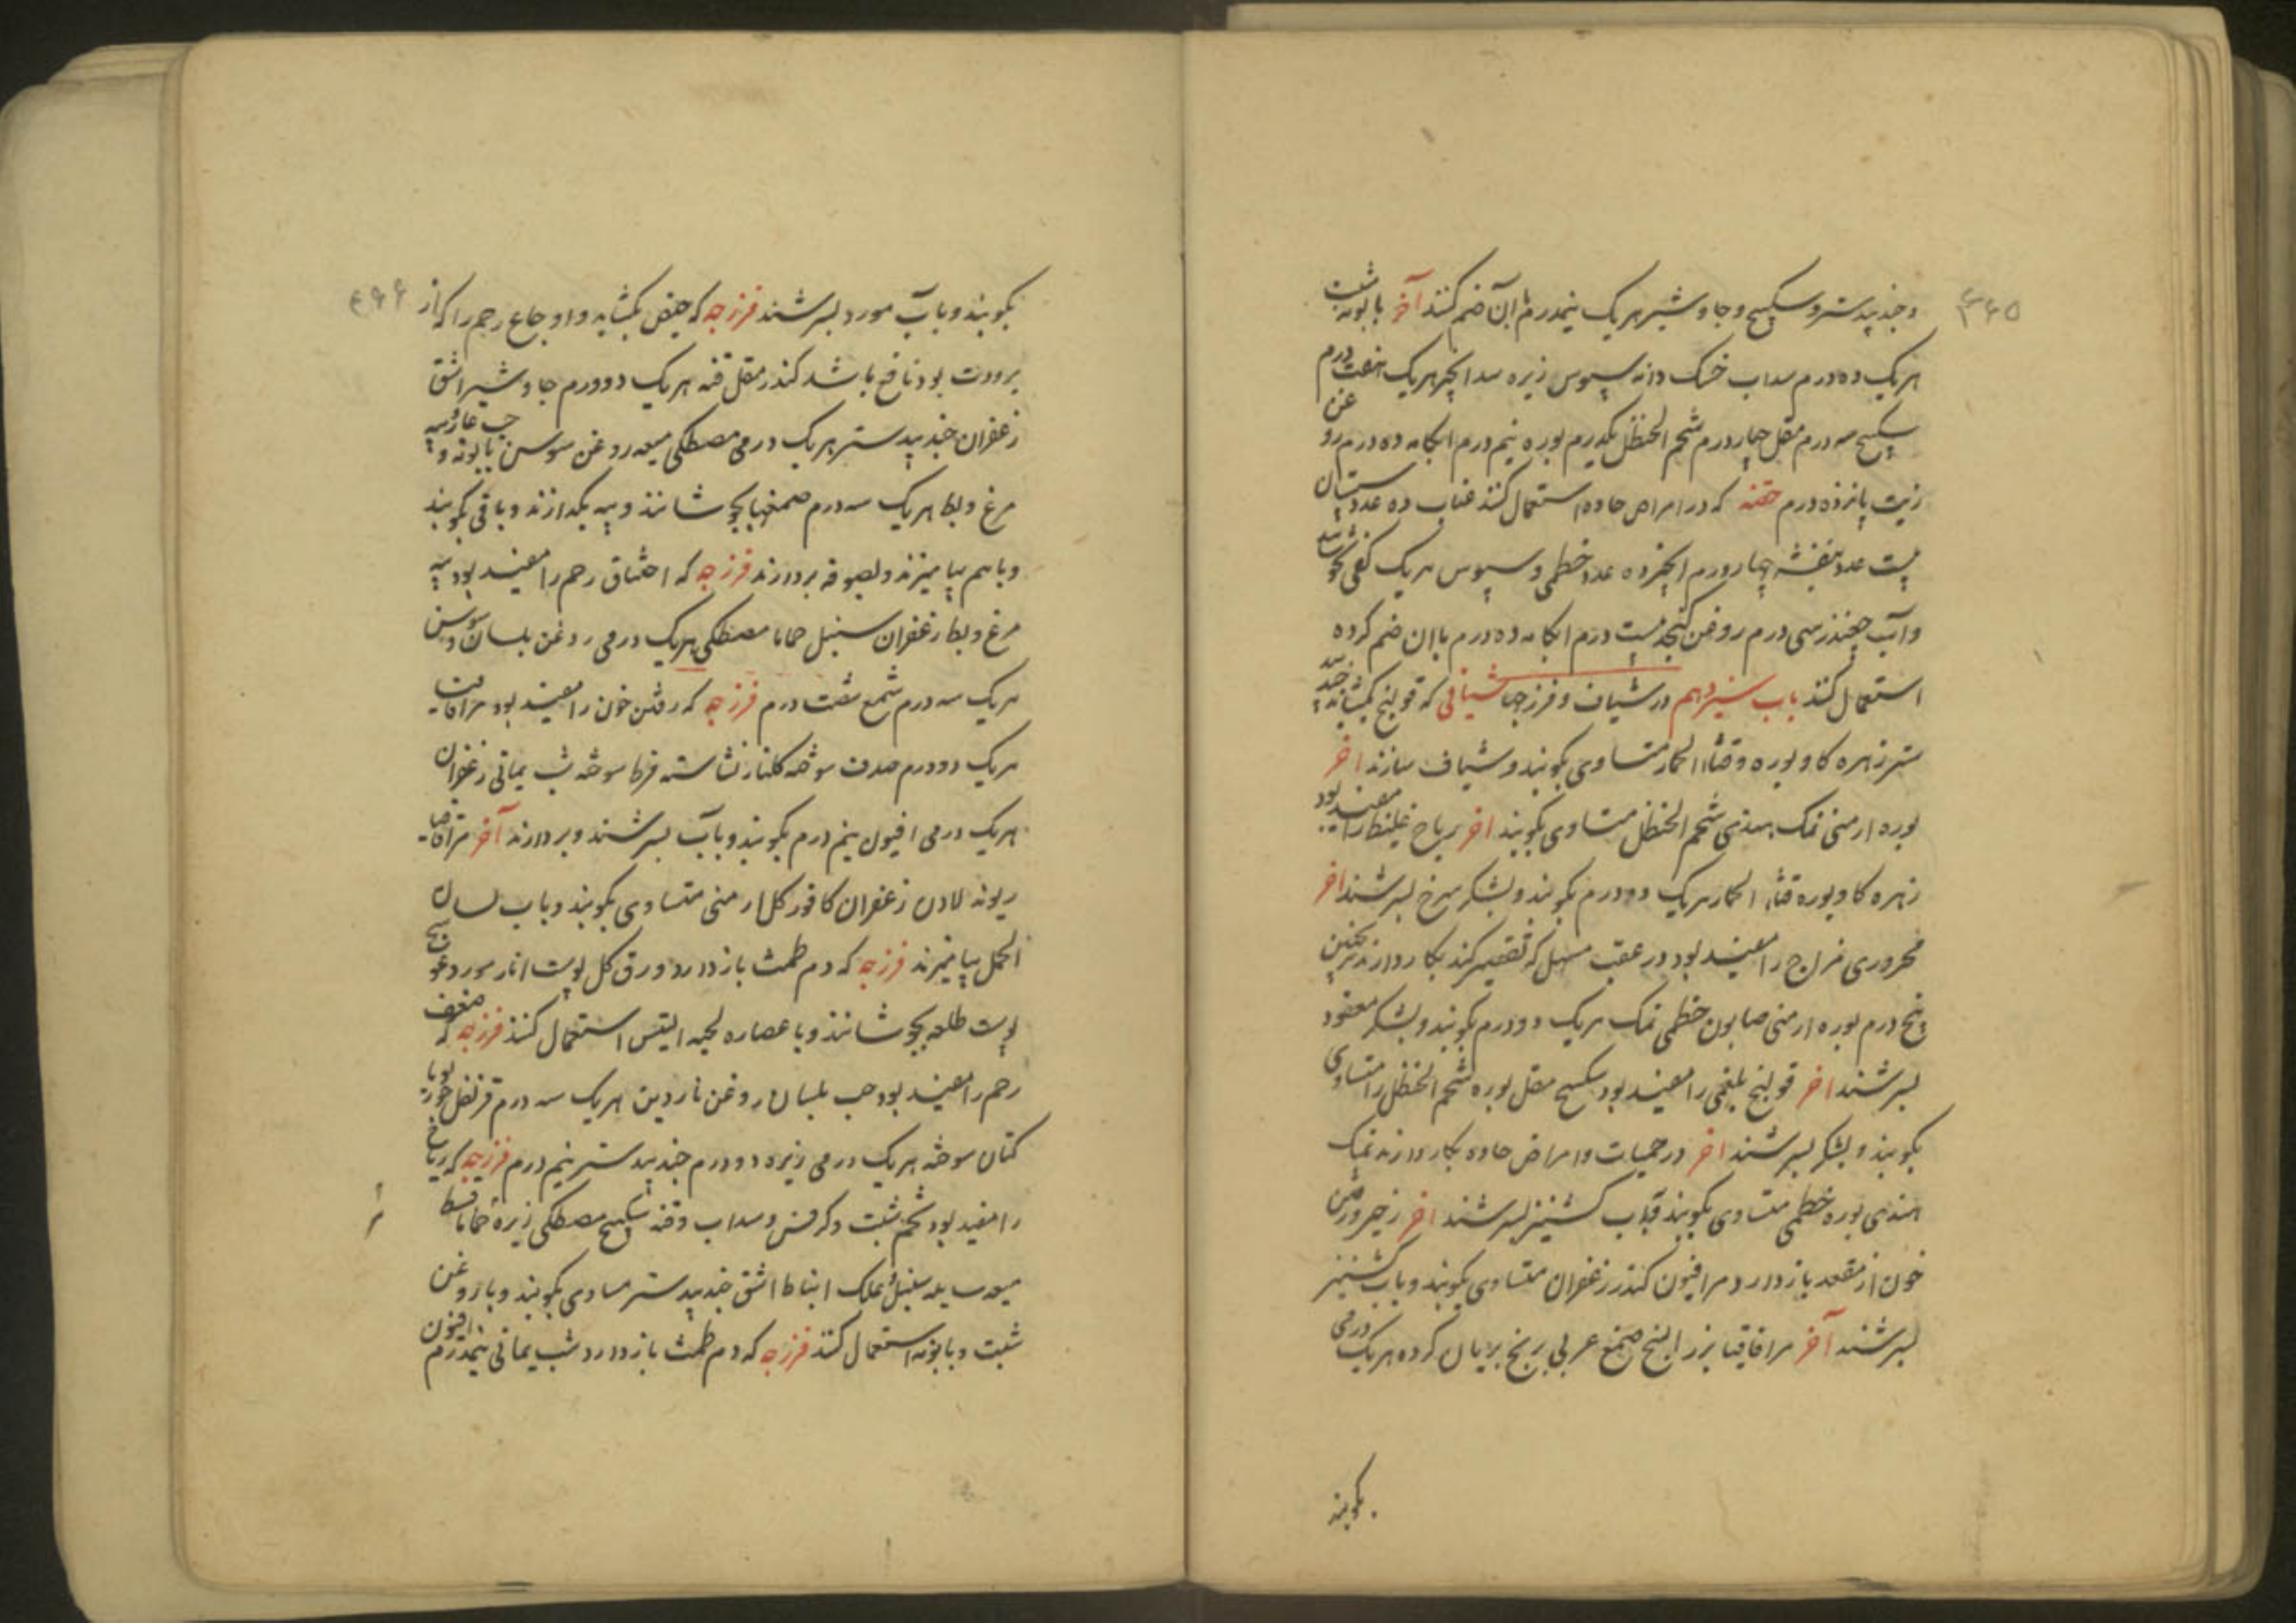 ۴۶۵
وجندبیدستر و سکبینج و جاوشیر هریک نیمدرم بآن ضم کنند آخر بابونه شبت
هریک ده درم سداب خشک دانه سپوس زیره سدا انجیر هریک هفت درم
سکبینج سه درم مقل چهار درم شحم الحنظل یکدرم بوره نیم درم ابکامه ده درم روغن
زیت پانزده درم حقنه که در امراض حاده استعمال کنند عناب ده عدد سپستان
بیست عدد بنفشه چهار درم انجیر ده عدد خطمی و سپوس هریک کفی بجوشانند
وآب چغندر سی درم روغن کنجد بیست درم ابکامه ده درم باان ضم کرده
استعمال کنند باب سیزدهم در شیاف و فرزجها شیافی که قولنج بکشاید جندبید
ستر زهره کاو بوره و قثاء الحمار متساوی بکوبند و شیاف سازند اخر
بوره ارمنی نمک هندی شحم الحنظل متساوی بکوبند اخر ریاح غلیظ را مفید بود
زهره کاو بوره قثاء الحمار هریک دودرم بکوبند و بشکر سرخ بسرشند اخر
محروری مزاج را مفید بود در عقب مسهل که تقصیر کند بکار دارند ترنجبین
پنج درم بوره ارمنی صابون خطمی نمک هریک دودرم بکوبند و بشکر معقود
بسرشند اخر قولنج بلغمی را مفید بود سکبینج مقل بوره شحم الحنظل را متساوی
بکوبند و بشکر بسرشند اخر در حمیات و امراض حاده بکار دارند نمک
هندی بوره خطمی متساوی بکوبند و بآب کشنیز بسرشند اخر زحیر و رفتن
خون از مقعد باز دارد مر افیون کندر زعفران متساوی بکوبند و باب کشنیز
بسرشند آخر مر اقاقیا بزر البنج صمغ عربی برنج بریان کرده هریک درمی
بکوبند
۴۶۶
بکوبند و بآب مورد بسرشند فرزجه که حیض بکشاید و اوجاع رحم را که از
برودت بود نافع باشد کندر مقل قنه هریک دودرم جاوشیر اشق
زعفران جندبیدستر هریک درمی مصطکی میعه روغن سوسن بابونه و حب غار و پیه
مرغ و بط هریک سه درم صمغها بجوشانند و پیه بگدازند و باقی بکوبند
وباهم بیامیزند و بصوفه بردارند فرزجه که اختناق رحم را مفید بود پیه
مرغ و بط زعفران سنبل حماما مصطکی هریک درمی روغن بلسان و سوسن
هریک سه درم شمع شقت درم فرزجه که رفتن خون را مفید بود مر اقاقیا
هریک دودرم صدف سوخته کلنار نشاسته قرط سوخته شب یمانی زعفران
هریک درمی افیون نیم درم بکوبند و بآب بسرشند و بردارند آخر مر اقاقیا
ریوند لادن زعفران کافور کل ارمنی متساوی بکوبند و باب لسان
الحمل بیامیزند فرزجه که دم طمث باز دارد ورق کل پوست انار مورد عوسج
پوست طلعه بجوشانند و با عصاره لحیه التیس استعمال کنند فرزجه که ضعف
رحم را مفید بود حب بلسان روغن ناردین هریک سه درم قرنفل جوزبویا
کتان سوخته هریک درمی زیره دودرم جندبیدستر نیم درم فرزجه که ریاح
را مفید بود تخم شبت و کرفس و سداب و قنه سکبینج مصطکی زیره حماما قسط
میعه سایله سنبل علک انباط اشق جندبیدستر مساوی بکوبند و باروغن
شبت و بابونه استعمال کنند فرزجه که دم طمث باز دارد شب یمانی نیمدرم افیون